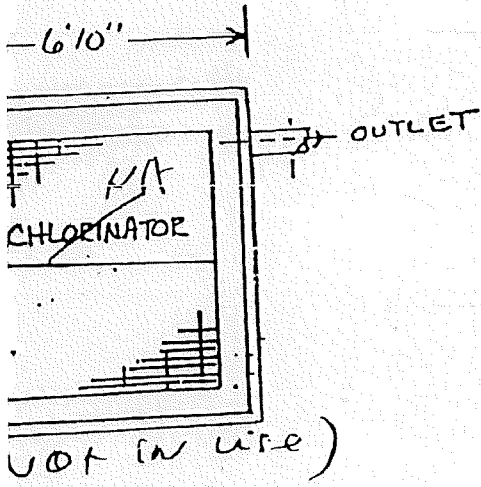 6'10"
OUTLET
NA
CHLORINATOR
NOT IN USE)